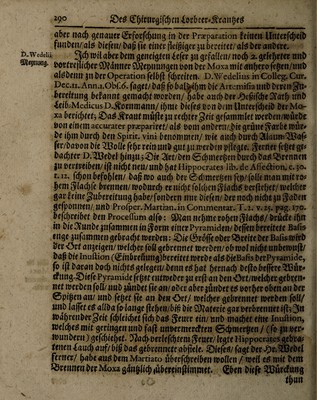 290 Des Chirurgischen Lorbeer-Krantzes
aber nach genauer Erforschung in der Præparation keinen Unterscheid
funden/ als diesen/ daß sie einer fleißiger zu bereitet/ als der andere.
D. Wedelii
Meynung.
Ich wil aber dem geneigten Leser zu gefallen/ noch 2. gelehrter und
vortrefflicher Männer Meynungen von der Moxa mit anhero setzen/ und
alsdenn zu der Operation selbst schreiten. D. Wedelius in Colleg. Cur.
Dec. 11. Anna 2. Obs. 6. saget/ daß so bald ihm die Artemisia und deren Zu-
bereitung bekannt gemacht worden/ habe auch der Hessische Rath und
Leib-Medicus D. Kornmann/ ihme dieses von dem Unterscheid der Mo-
xa berichtet; Das Kraut müste zu rechter Zeit gesammlet werden/ würde
von einem accurater præpariret/ als vom andern/ die grüne Farbe wür-
de ihm durch den Spirit. vini benommen/ wie auch durch Alaun-Was-
ser/ davon die Wolle sehr rein und gut zu werden pflegte. Ferner setzet ge-
dachter D. Wedel hinzu; Die Art/ den Schmertzen durch das Brennen
zu vertreiben/ ist nicht neu/ und hat Hippocrates lib. de Affection. c. 30.
t. 11. schon befohlen/ daß wo auch der Schmertzen sey/ solle man mit ro-
hem Flachse brennen/ wodurch er nicht solchen Flachs verstehet/ welcher
gar keine Zubereitung habe/ sondern nur diesen/ der noch nicht zu Faden
gesponnen/ und Prosper. Martian. in Commentar. T. 2. v. 25. pag. 170.
beschreibet den Processum also: Man nehme rohen Flachs/ drücke ihn
in die Runde zusammen in Form einer Pyramiden/ dessen bereitete Basis
enge zusammen gebracht werden: Die Grösse oder Breite der Basis wird
der Ort anzeigen/ welcher soll gebrennet werden/ ob wol nicht unbewust/
daß die Inustion (Einbrennung) breiter werde als die Basis der Pyramide/
so ist daran doch nichts gelegen/ denn es hat hernach desto bessere Wür-
ckung. Diese Pyramide setzet entweder zu erst an den Ort/ welcher gebren-
net werden soll/ und zündet sie an/ oder aber zündet es vorher oben an der
Spitzen an/ und setzet sie an den Ort/ welcher gebrennet werden soll/
und lasset es allda so lange stehen/ biß die Materie gar verbrennet ist: In
währender Zeit schleichet sich das Feuer ein/ und machet eine Inustion,
welches mit geringen und fast unvermerckten Schmertzen/ (so zu ver-
wundern) geschiehet. Nach verleschtem Feuer/ legte Hippocrates gebra-
tenen Lauch auf/ biß das gebrennete abfiele. Dieses/ sagt der Hr. Wedel
ferner/ habe aus dem Martiato überschreiben wollen/ weil es mit dem
Brennen der Moxa gäntzlich übereinstimmet. Eben diese Würckung
thun